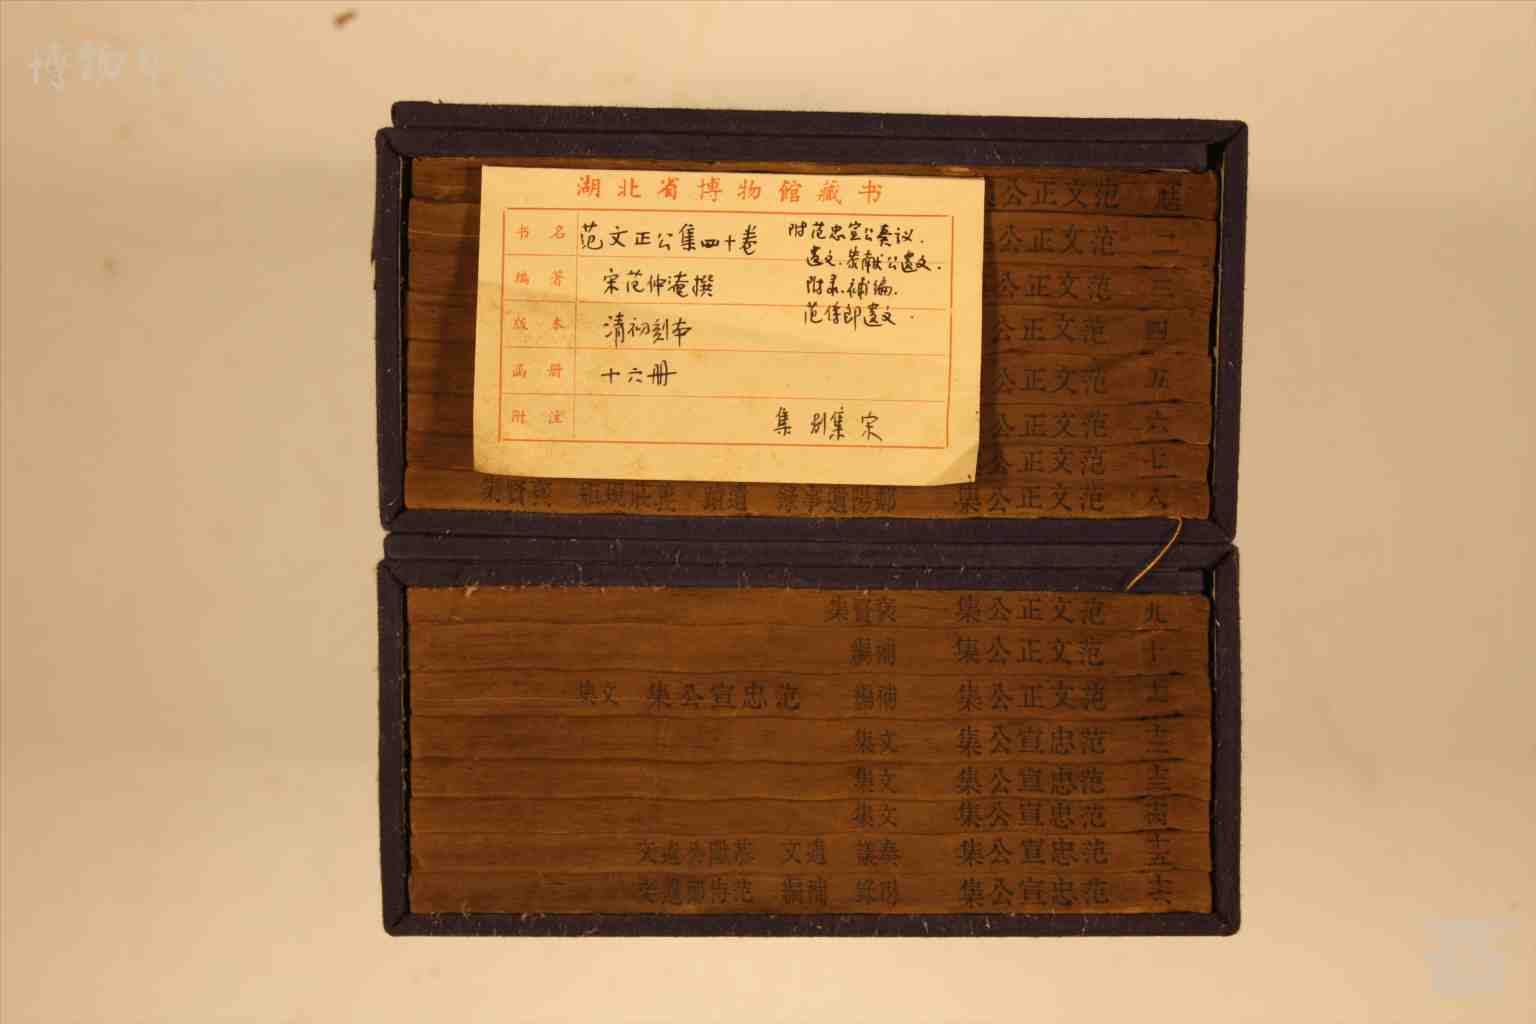 湖北省博物馆藏书
书名 范文正公集四十卷 附范忠宣公奏议.
遗文.恭献公遗文.
附录.补编.
范侍郎遗文.
编著 宋范仲淹撰
版本 清初刻本
函册 十六册
附注 集 别集 宋
公正文范
公正文范 二
公正文范 三
公正文范 四
公正文范 五
公正文范 六
公正文范 七
集賢襃 矩規莊義 蹟遺 錄事遺陽鄱 集公正文范 八
集賢襃 集公正文范 九
編補 集公正文范 十
集文 集公宣忠范 編補 集公正文范 十一
集文 集公宣忠范 十二
集文 集公宣忠范 十三
集文 集公宣忠范 十四
文遺公獻恭 文遺 議奏 集公宣忠范 十五
文遺郎侍范 編補 錄附 集公宣忠范 十六